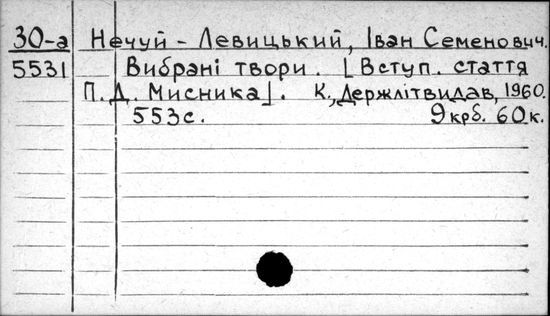 30-а Нечуй - Левицький, Іван Семенович.
5531 Вибрані твори. [Вступ. стаття
П. Д. Мисника]. К., Держлітвидав, 1960.
553с. 9 крб. 60 к.